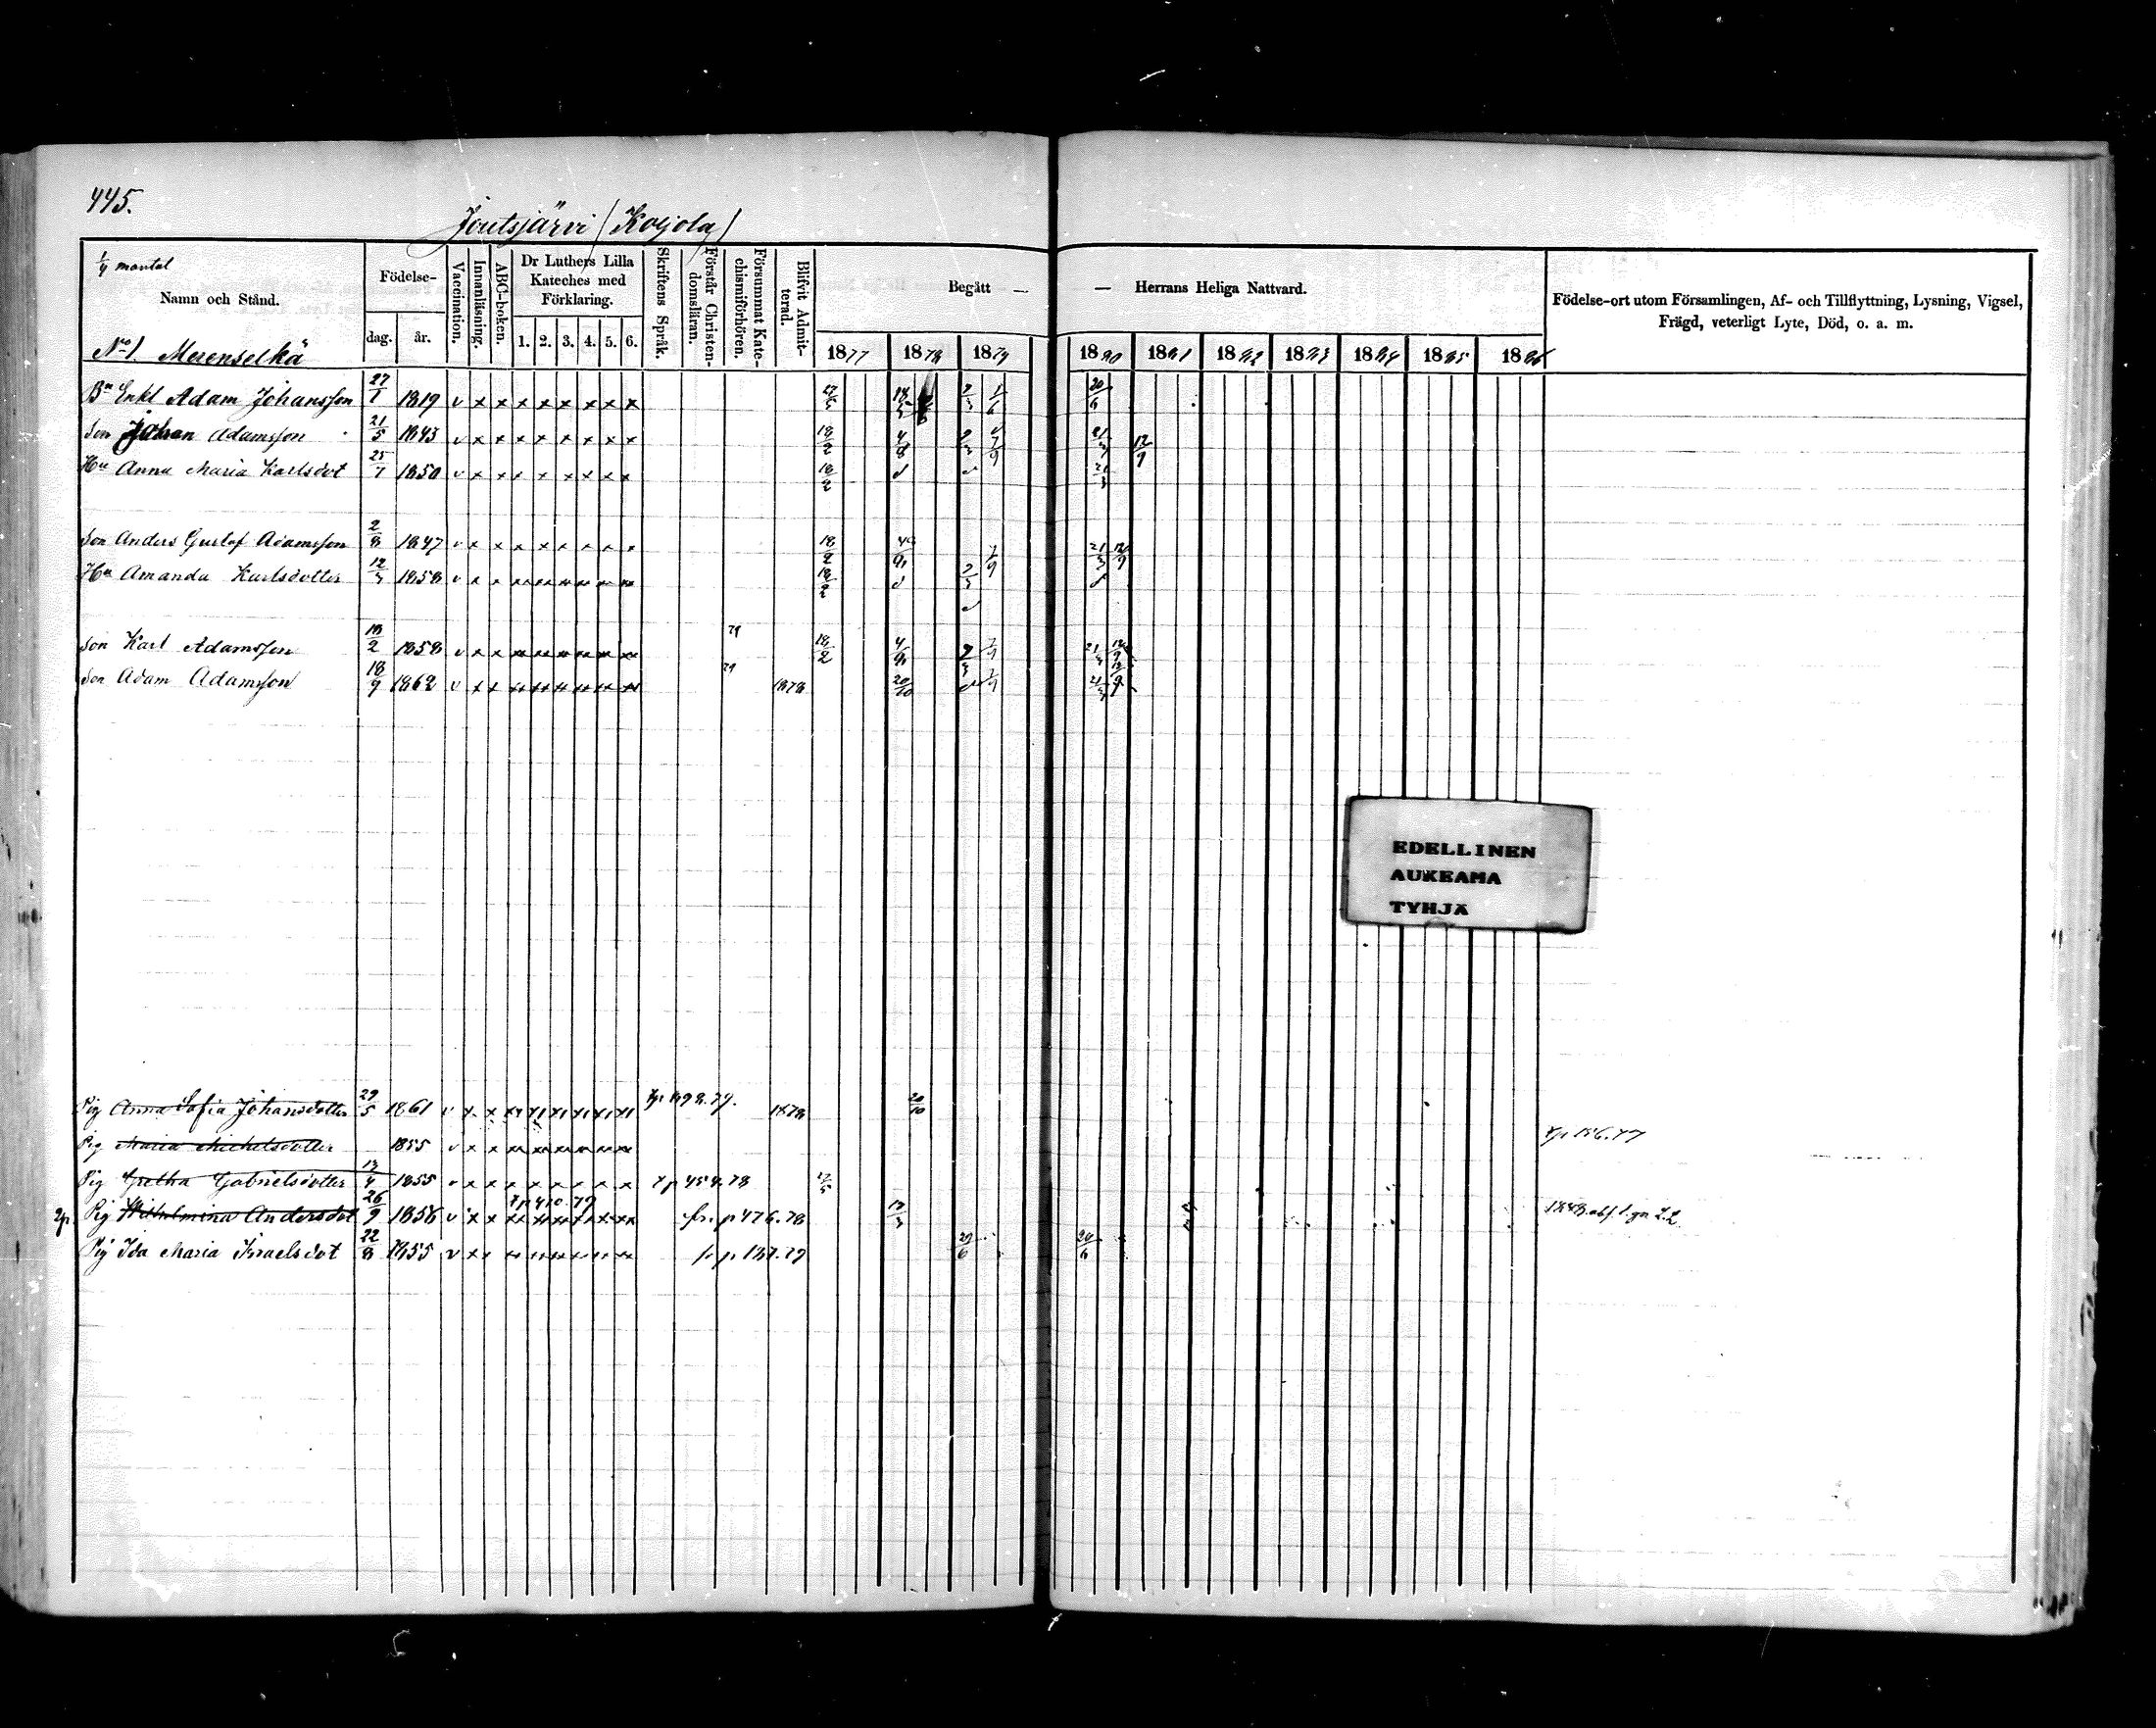 445.
Joutsjärvi (Kojola)
1/4 mantal
Namn och Stånd.
No 1. Merenselkä
Födelse-
dag. år.
Vaccination.
Innanläsning.
ABC-boken.
Dr Luthers Lilla
Kateches med
Förklaring.
1. 2. 3. 4. 5. 6.
Skriftens Språk.
Förstår Christen-
domsläran.
Försummat Kate-
chismiförhören.
Blifvit Admit-
terad.
Begått — — Herrans Heliga Nattvard.
1877 1878 1879 1880 1881 1882 1883 1884 1885 1886
Födelse-ort utom Församlingen, Af- och Tillflyttning, Lysning, Vigsel,
Frägd, veterligt Lyte, Död, o. a. m.
Bn Enkl Adam Johansson 27/1 1819 v x x x x x x x x 18/3 1/6 20/6
Son Johan Adamsson 21/5 1843 v x x x x x x x x 18/2 21/3 12/9
Hu Anna Maria Karlsdot 25/7 1850 v x x x x x x x x 18/2 21/3
Son Anders Gustaf Adamsson 2/8 1847 v x x x x x x x x 18/2 7/9 21/3 12/9
Hu Amanda Karlsdotter 12/3 1858 v x x 18/2 2/3
Son Karl Adamsson 18/2 1858 v x x 79 18/2 7/9 21/3 12/9
Son Adam Adamsson 18/9 1862 v x x 79 1878 20/10 7/9 21/3 12/9
Pig Anna Sofia Johansdotter 29/5 1861 v x x 1878 20/10
Pig Maria Michelsdotter 1855 v x x
Pig Gretha Gabrielsdotter 13/4 1855 v x x x x x x x x
Pig Wilhelmina Andersdot 26/9 1856 v x x fr. p 476.78
Pig Ida Maria Israelsdot 22/8 1855 v x x fr p 137.79 29/6 20/6
EDELLINEN
AUKEAMA
TYHJÄ